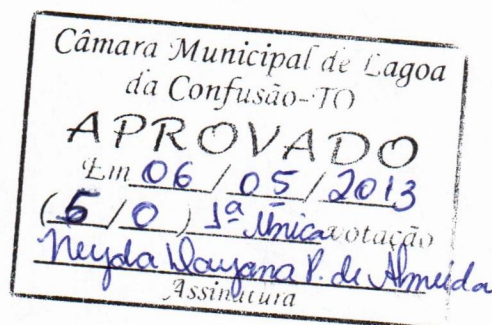 Câmara Municipal de Lagoa
da Confusão-TO
APROVADO
Em 06 / 05 / 2013
(5/0) 1ª Única votação
Neyda Dayana P. de Almeida
Assinatura